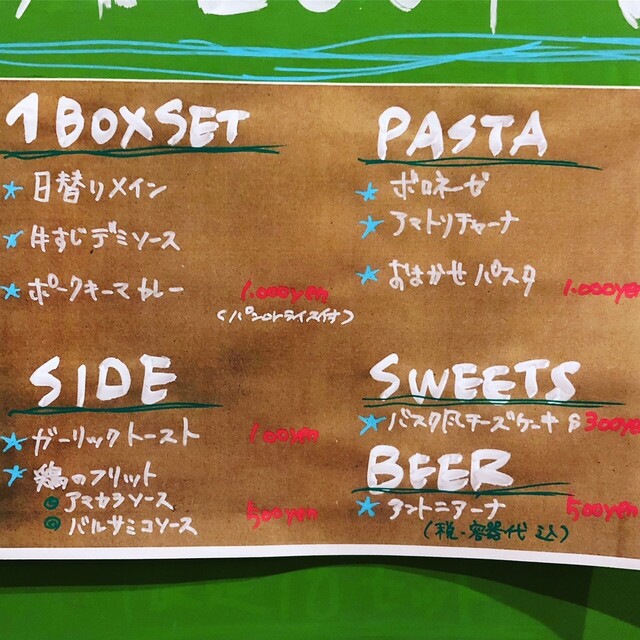 1 BOX SET
日替りメイン
牛すじデミソース
ポークキーマカレー 1.000yen
(パンorライス付)
SIDE
ガーリックトースト 100yen
鶏のフリット
アマカラソース
バルサミコソース 500yen
PASTA
ボロネーゼ
アマトリチャーナ
おまかせパスタ 1.000yen
SWEETS
バスク風チーズケーキ 300yen
BEER
アントニアーナ 500yen
(税・容器代込)